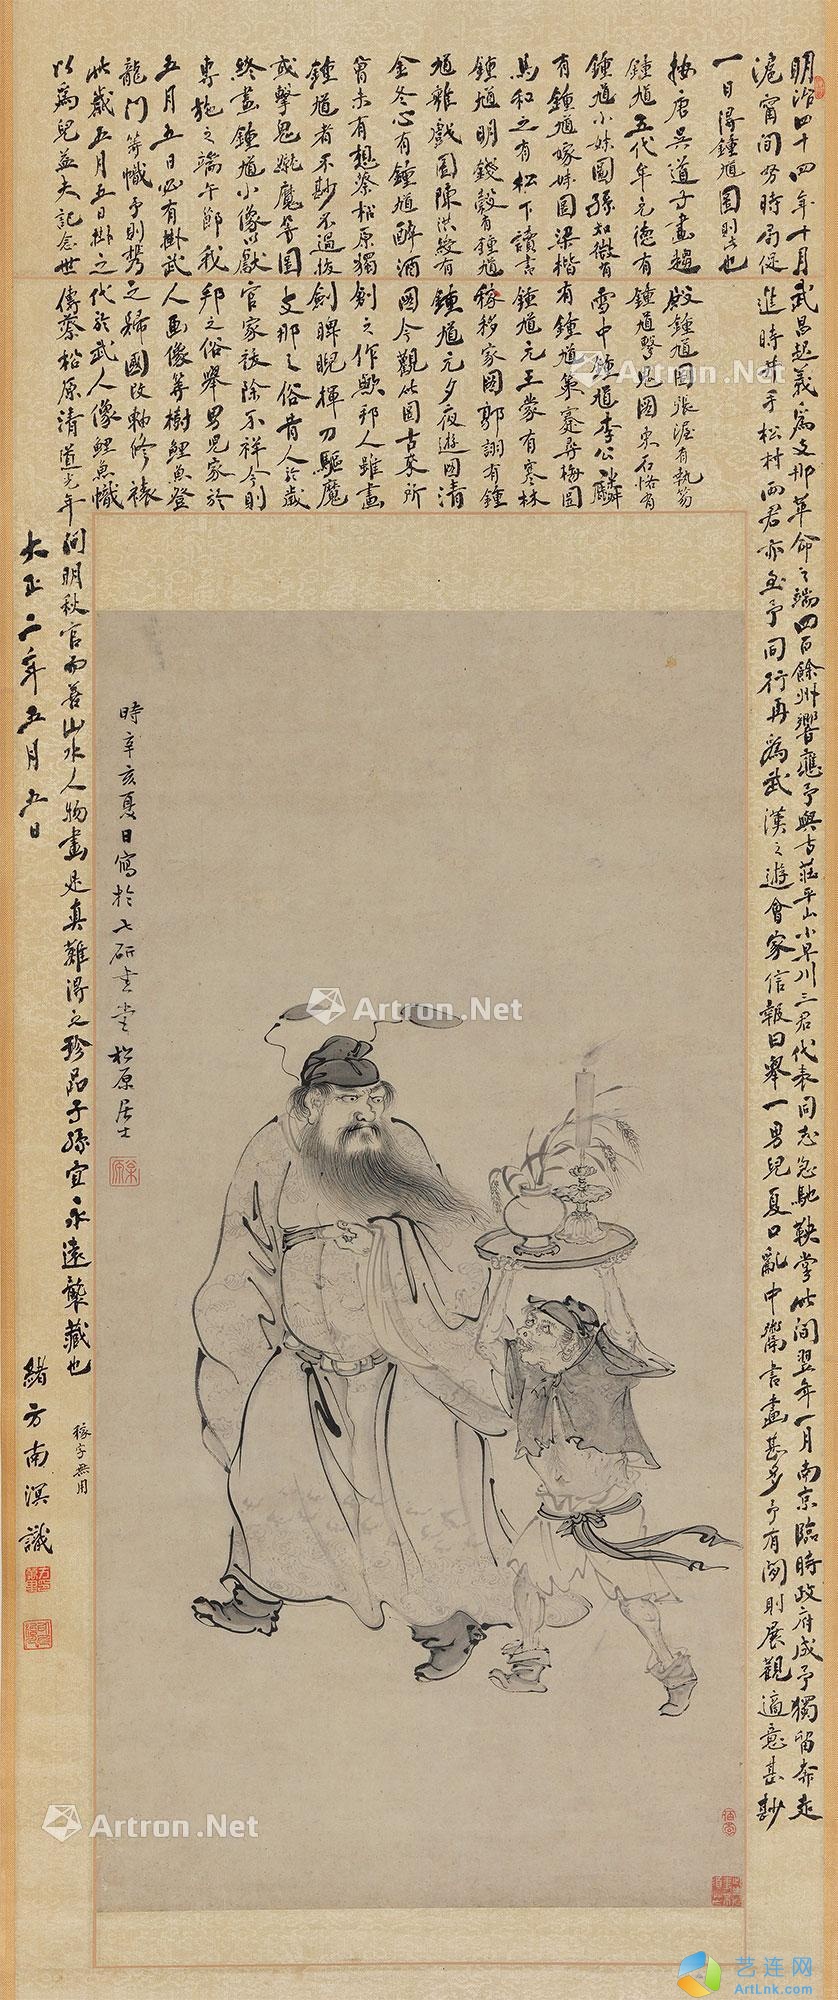 明治四十四年十月武昌起義為支那革命之端四百餘州響應予與古莊平山小早川三君代表同志急馳鞅掌此間翌年一月南京臨時政府成予獨留奔走
滬甯間努時局促進時井手松村両君亦至予同行再為武漢之遊會家信報曰舉一男兒夏口亂中鬻書畫甚多予有閑則展觀適意甚尠
一日得鍾馗圖則此也
按唐吳道子畫趨殿鍾馗圖張渥有執笏
鍾馗五代牟元德有鍾馗擊鬼圖宋石恪有
鍾馗小妹圖孫知微有雪中鍾馗李公麟
有鍾馗嫁妹圖梁楷有鍾馗策蹇尋梅圖
馬和之有松下讀書鍾馗元王蒙有寒林
鍾馗明錢穀有鍾馗稼移家圖郭詡有鍾
馗雜戲圖陳洪綬有鍾馗元夕夜遊圖清
金冬心有鍾馗醉酒圖今觀此圖古來所
嘗未有想蔡松原獨創之作歟邦人雖畫
鍾馗者不尠不過按劍睥睨揮刀驅魔
或擊鬼魔等圖支那之俗昔人於歲
終畫鍾馗小像以獻官家祓除不祥今則
專施之端午節我邦之俗舉男兒家於
五月五日必有掛武人画像等樹鯉魚登
龍門等幟予則携之歸國改軸修裱
此歲五月五日掛之代於武人像鯉魚幟
以為兒益夫記念世傳蔡松原清道光年間明秋官而善山水人物畫是真難得之珍品子孫宜永遠襲藏也
稼字無用
大正二年五月五日
緒方南溟識
時辛亥夏日寫於七研書堂松原居士
Artron.Net
Artron.Net
Artron.Net
Artron.Net
Artron.Net
Artron.Net
艺连网
ArtLnk.com